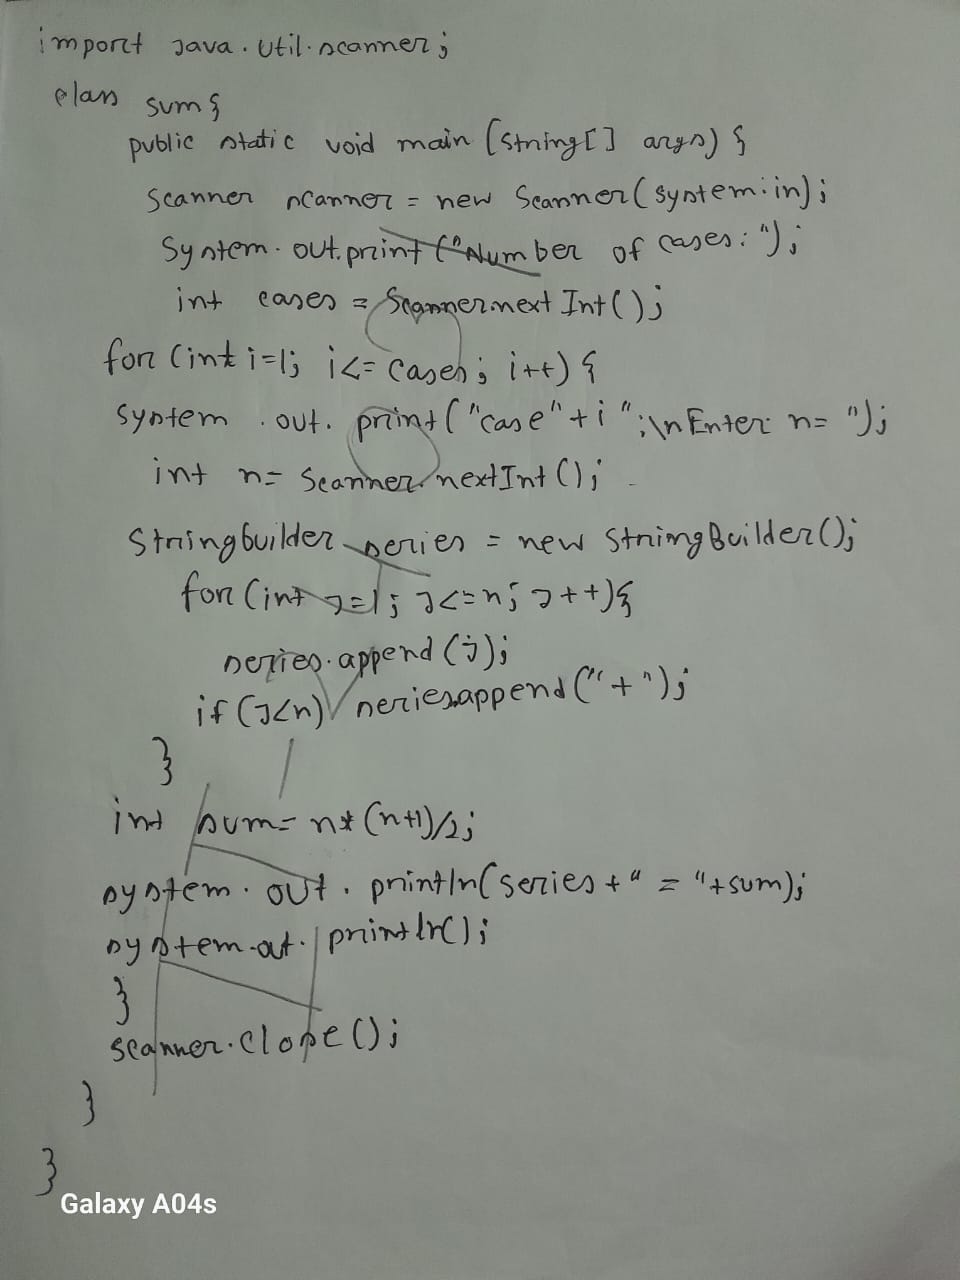 import java.util.scanner;
class sum{
public static void main (string[] args) {
Scanner scanner = new Scanner(system.in);
System.out.print ("Number of cases: ");
int cases = Scanner.nextInt();
for (int i=1; i<= cases; i++) {
system.out.print("case"+i ":\nEnter n= ");
int n= Scanner.nextInt();
Stringbuilder series = new StringBuilder();
for (int j=1; j<=n; j++){
series.append(j);
if (j<n) series.append("+");
}
int sum= n* (n+1)/2;
system.out.println(series+" = "+sum);
system.out.println();
}
scanner.close();
}
}
Galaxy A04s